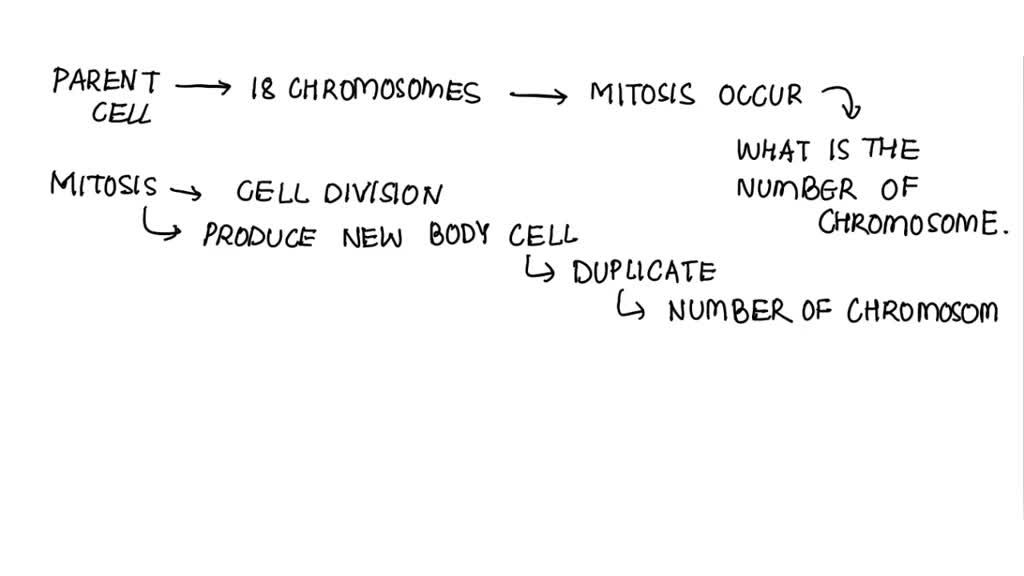 PARENT CELL → 18 CHROMOSOMES → MITOSIS OCCUR
WHAT IS THE
NUMBER OF
CHROMOSOME.
MITOSIS → CELL DIVISION
↳ PRODUCE NEW BODY CELL
↳ DUPLICATE
↳ NUMBER OF CHROMOSOM